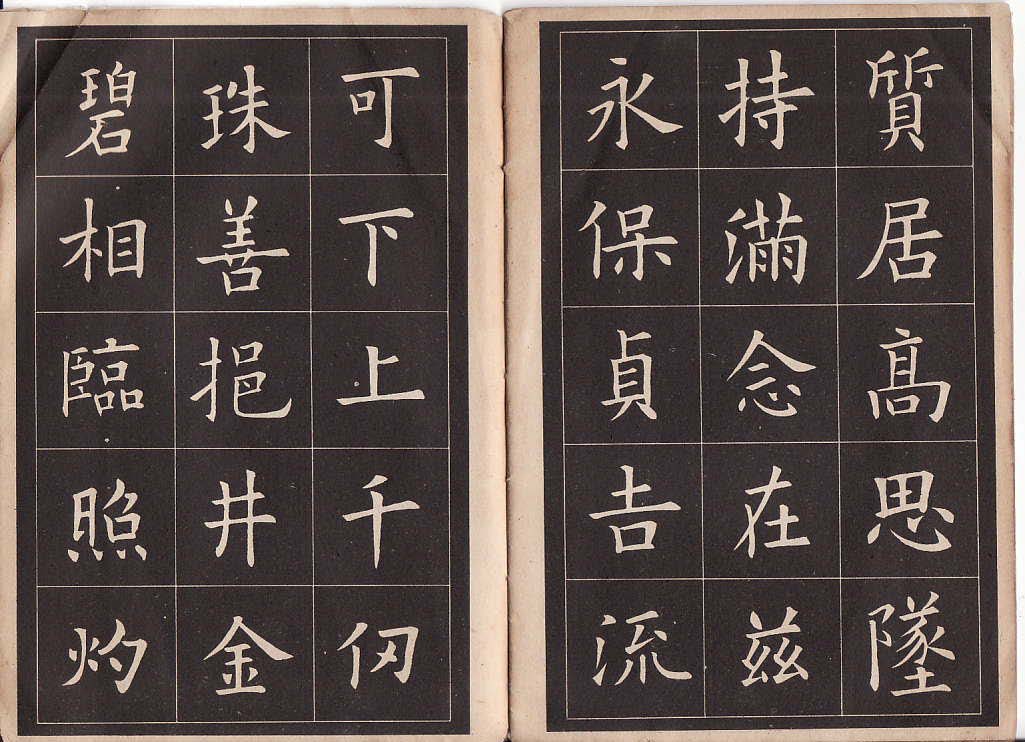 質居髙思墜
持滿念在兹
永保貞吉流
可下上千仞
珠善挹井金
碧相臨照灼